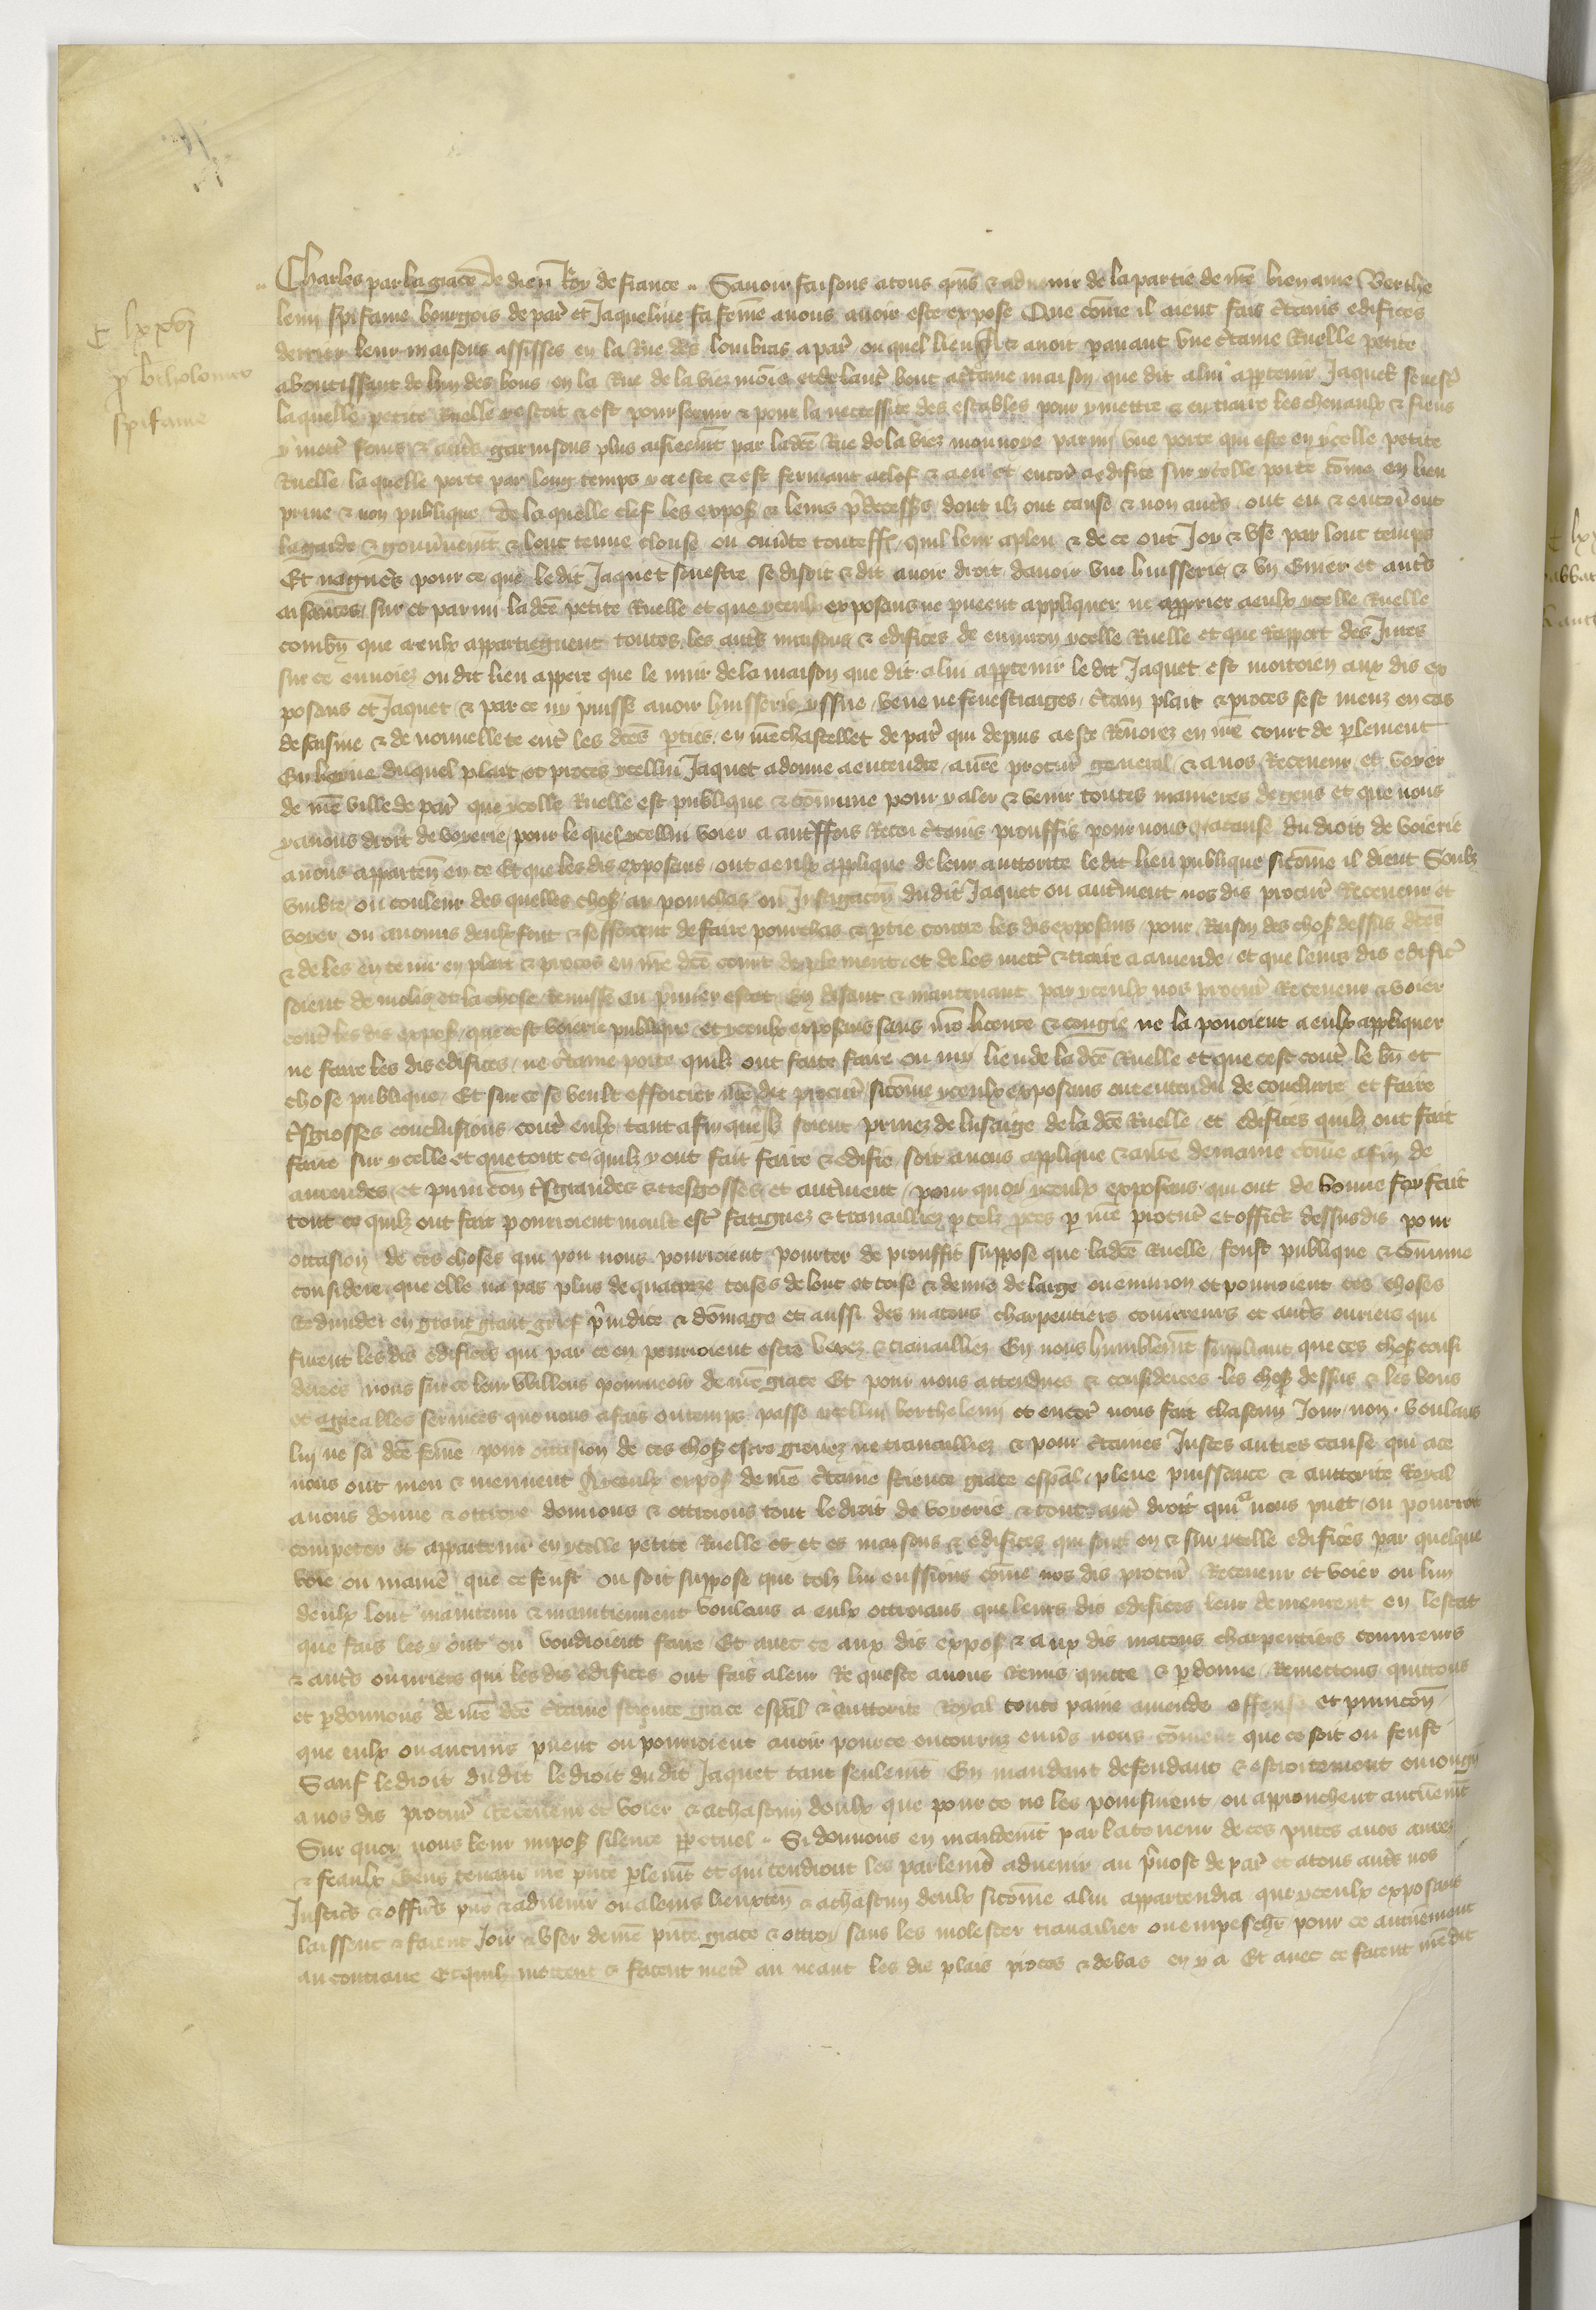 C lxxvi
p btholomeo
spifame
Charles par la grace de dieu Roy de france Savoir faisons a tous pns & advenir de la partie de nre bien ame Berthe
lemi spifame bourgois de par et Jaqueline sa feme a nous avoir este expose Que come il aient fais ctains edifices
derrier leur maisons assisses en la Rue des lombars a par ou quel lieu avoit paravant une ctaine Ruelle petite
aboutissant de lun des bous en la Rue de la viez monoie et de lautr bout a ctaine maison que dit a lui aptenir Jaquet senestr
la quelle petite Ruelle estoit & est pour servir & pour la necessite des estables pour y mettre & en traire les chevaulx & fiens
y mettr foins & autrs garnisons plus aiseemt par ladce Rue de la viez monnoye parmi une porte qui este en ycelle petite
Ruelle la quelle porte par long temps y a este & est fermant a clef & a eu et encor a edifice sur ycelle porte come en lieu
prive & non publique De la quelle clef les expos & leurs pdecessrs dont ilz ont cause & non autrs ont eu & encor ont
la garde & gouvnemt & lont tenue clouse ou ouvte touteff quil leur a pleu & de ce ont Joy & use par lonc temps
Et nagures pour ce que ledit Jaquet senestre se disoit & dit avoir droit davoir une huisserie & un Evier et autrs
aisances sur et parmi ladce petite Ruelle et que yceulx exposans ne pueent appliquer ne approprier a eulx ycelle Ruelle
combn que a eulx appartiegnent toutes les autrs maisons & edifices de environ ycelle Ruelle et que Rapport des Jures
sur ce envoiez ou dit lieu appere que le mur de la maison que dit a lui apptenir le dit Jaquet est moitoien aux dis ex
posans et Jaquet & par ce ny puisse avoir huisserie yssue veue ne fenestraiges ctain plait & proces sest meuz en cas
de saisine & de nouvellete entr les dces pties en nre chastellet de par qui depuis a este Renvoiez en nre court de plement
En hayne duquel plait et proces ycellui Jaquet a donne a entendre a nre procur general & a nos Receveur et voyer
de nre ville de par que ycelle Ruelle est publique & comune pour y aler & venir toutes manieres de gens et que nous
y avons droit de voyerie pour le quel ycellui voier a autreffois Receu ctains prouffis pour nous a cause du droit de voierie
a nous apparten en ce Et que les dis exposans ont a eulx applique de leur auttorite le dit lieu publique sicome il dient Soubz
umbre ou couleur des quelles chos au pourchas ou Instigacon dudit Jaquet ou autrment nos dis procur Receveur et
voyer ou aucuns deulx font & sefforcent de faire pourchas & ptie contre les dis exposans pour Raison des chos dessus dces
& de les en tenir en plait & proces en nre dce court de plement et de les mettr & traire a amende et que leurs dis edific
soient demolis et la chose Remisse au pmier estat En disant & maintenant par yceulx nos procur Receveur & voier
contr les dis expos que cest voierie publique et yceulx exposans sans nre licence & congie ne la povoient a eulx appliquer
ne faire les dis edifices ne ctaine porte quilz ont faite faire ou my lieu de la dce Ruelle et que cest contr le bn et
chose publique Et sur ce se veult efforcier nre dit procur sicome yceulx exposans ont entendu de conclurre et faire
tsgrosses conclusions contr eulx tant afin quilz soient privez de lusaige de la dce Ruelle et edifices quilz ont fait
faire sur ycelle et que tout ce quilz y ont fait faire & edifie soit a nous applique & a nre demaine come afin de
amendes et punicon tsgrandes & tresgrosses et autrment pour quoy yceulx exposans qui ont de bonne foy fait
tout ce quilz ont fait pourroient moult estr fatiguez & travailliez p telz pces p nre procur et offics dessusdis pour
occasion de ces choses qui pou nous pourroient pourter de prouffit suppose que ladce Ruelle feust publique & comune
considere que elle na pas plus de quatorze toises de lonc et toise & demie de large ou environ et pourroient ces choses
Redunder en grant grant grief pjudice & domage et aussi des macons charpentiers couvreurs et autrs ouvriers qui
firent les dis edifices qui par ce en pourroient estre vexez & travailliez En nous humblemt suppliant que ces chos consi
derees nous sur ce leur vuillons pourveoir de nre grace Et pour nous attendues & considerees les chos dessus & les bons
et agreables services que nous a fais ou temps passe ycellui berthelemi et encor nous fait chascun Jour non voulans
lui ne sa dce feme pour occasion de ces chos estre grevez ne travailliez & pour ctaines Justes autres cause qui a ce
nous ont meu & meuvent A yceulx expos de nre ctaine science grace espal plene puissance & auttorite Royal
avons donne & ottroye donnons & ottroions tout le droit de voyerie & tout autr droit qui a nous puet ou pourroit
competer et appartenir en ycelle petite Ruelle es et es maisons & edifices qui sont en & sur ycelle edifices par quelque
voie ou maniere que ce feust ou soit suppose que telz lui eussions come nos dis procur Receveur et voier ou lun
deulx lont maintenu & maintiennent voulans a eulx ottroians que leurs dis edifices leur demeurent en lestat
que fais les y ont ou voudroient faire Et avec ce aux dis expos & aux dis macons charpentiers couvreurs
& autrs ouvriers qui les dis edifices ont fais a leur Requeste avons Remis quitte & pdonne Remettons quittons
et pdonnons de nre dce ctaine science grace espal & auttorite Royal toute paine amende offense et punicon
que eulx ou aucuns pueent ou pourroient avoir pource encouruz envs nous coment que ce soit ou feust
Sauf le droit du dit le droit du dit Jaquet tant seulemt En mandant defendant & estroitement enjongn
a nos dis procur Receveur et voier & a chascun deulx que pour ce ne les poursuivent ou approuchent aucunemt
Sur quoy nous leur impos silence ppetuel Si donnons en mandemt par la teneur de ces pntes a nos amez
& feaulx gens tenant nre pnt plemt et qui tendront les parlems advenir au pvost de par et a tous autrs nos
Justics & offics pns & advenir ou a leurs lieuxten & a chascun deulx sicome a lui appartendra que yceulx exposans
laissent & facent Joir & user de nre pnte grace & ottroy sans les molester travailier ou empeschr pour ce aucunement
au contraire Et quilz mettent & facent mettr au neant les dis plais proces & debas en y a Et avec ce facent nre dit